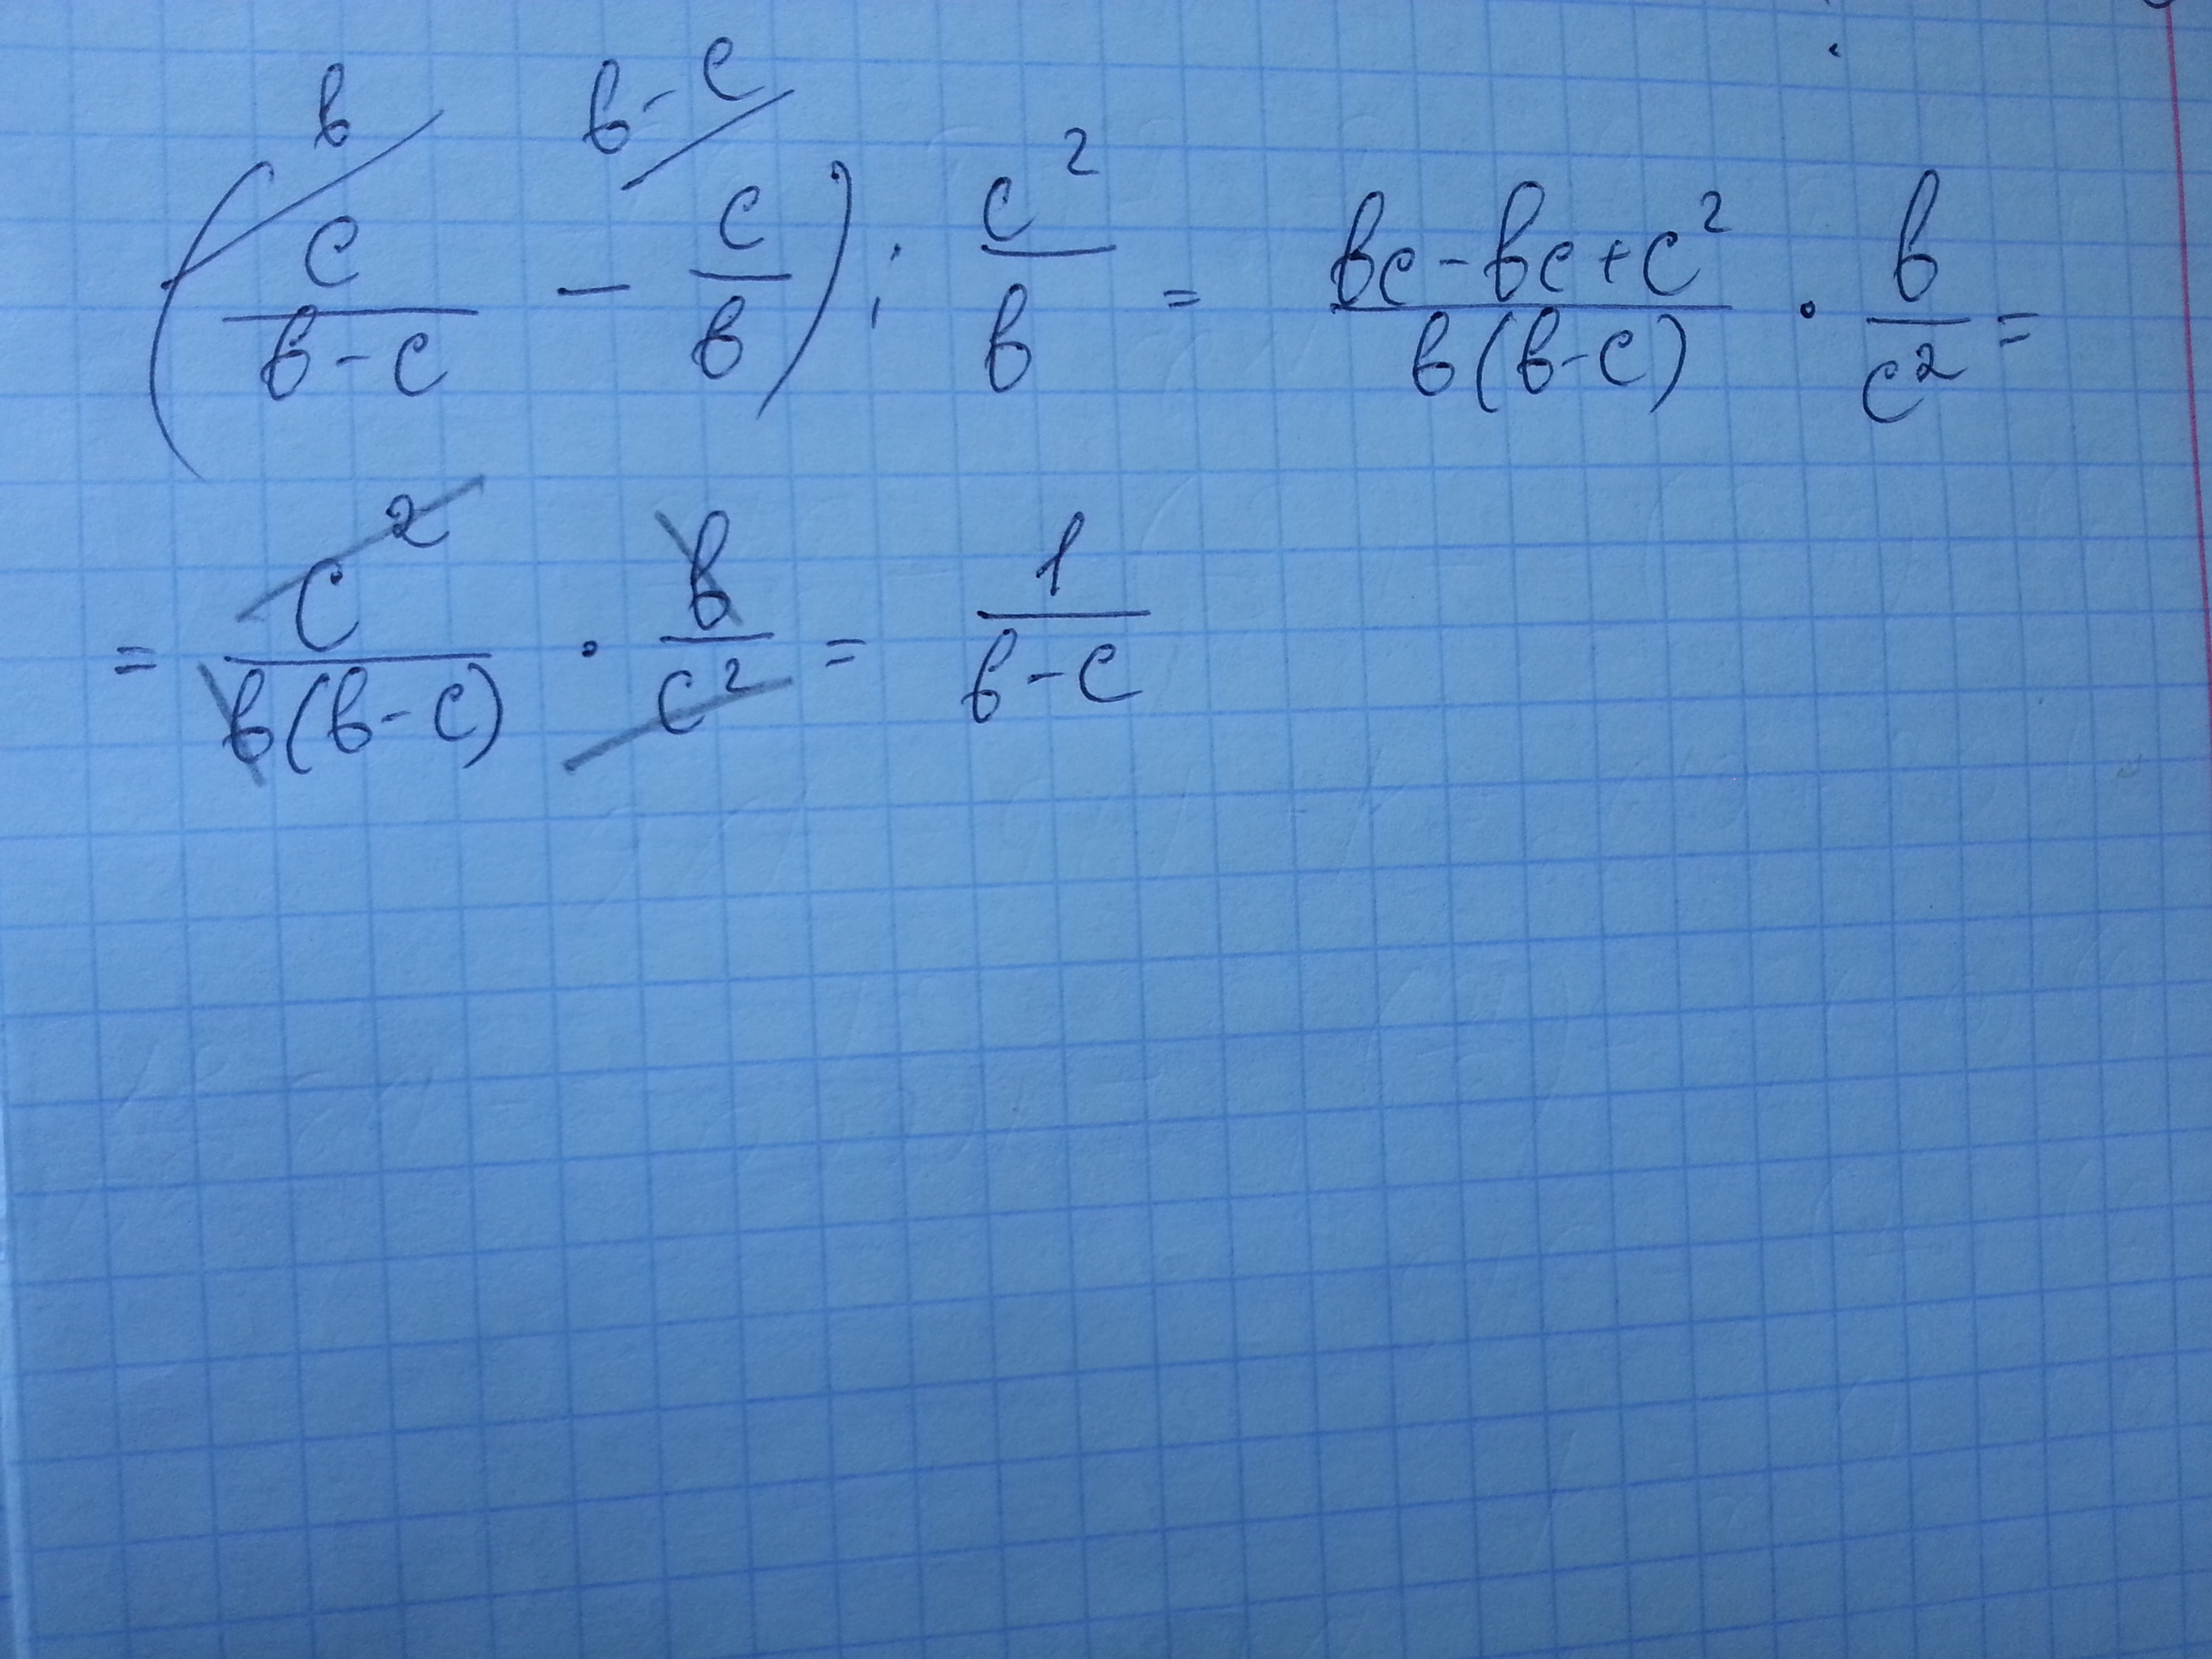 b b-c
(c/(b-c) - c/b) : c²/b = (bc-bc+c²)/(b(b-c)) · b/c² =
= c²/(b(b-c)) · b/c² = 1/(b-c)